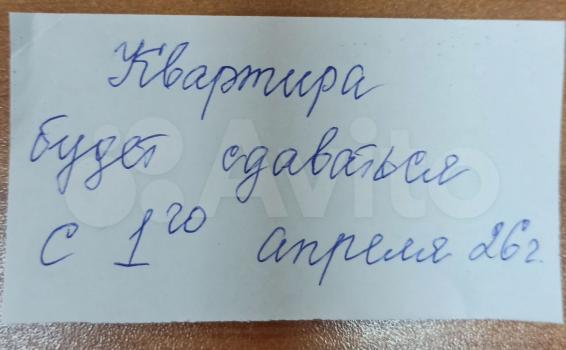 Квартира
будет сдаваться
с 1го апреля 26г.
Avito